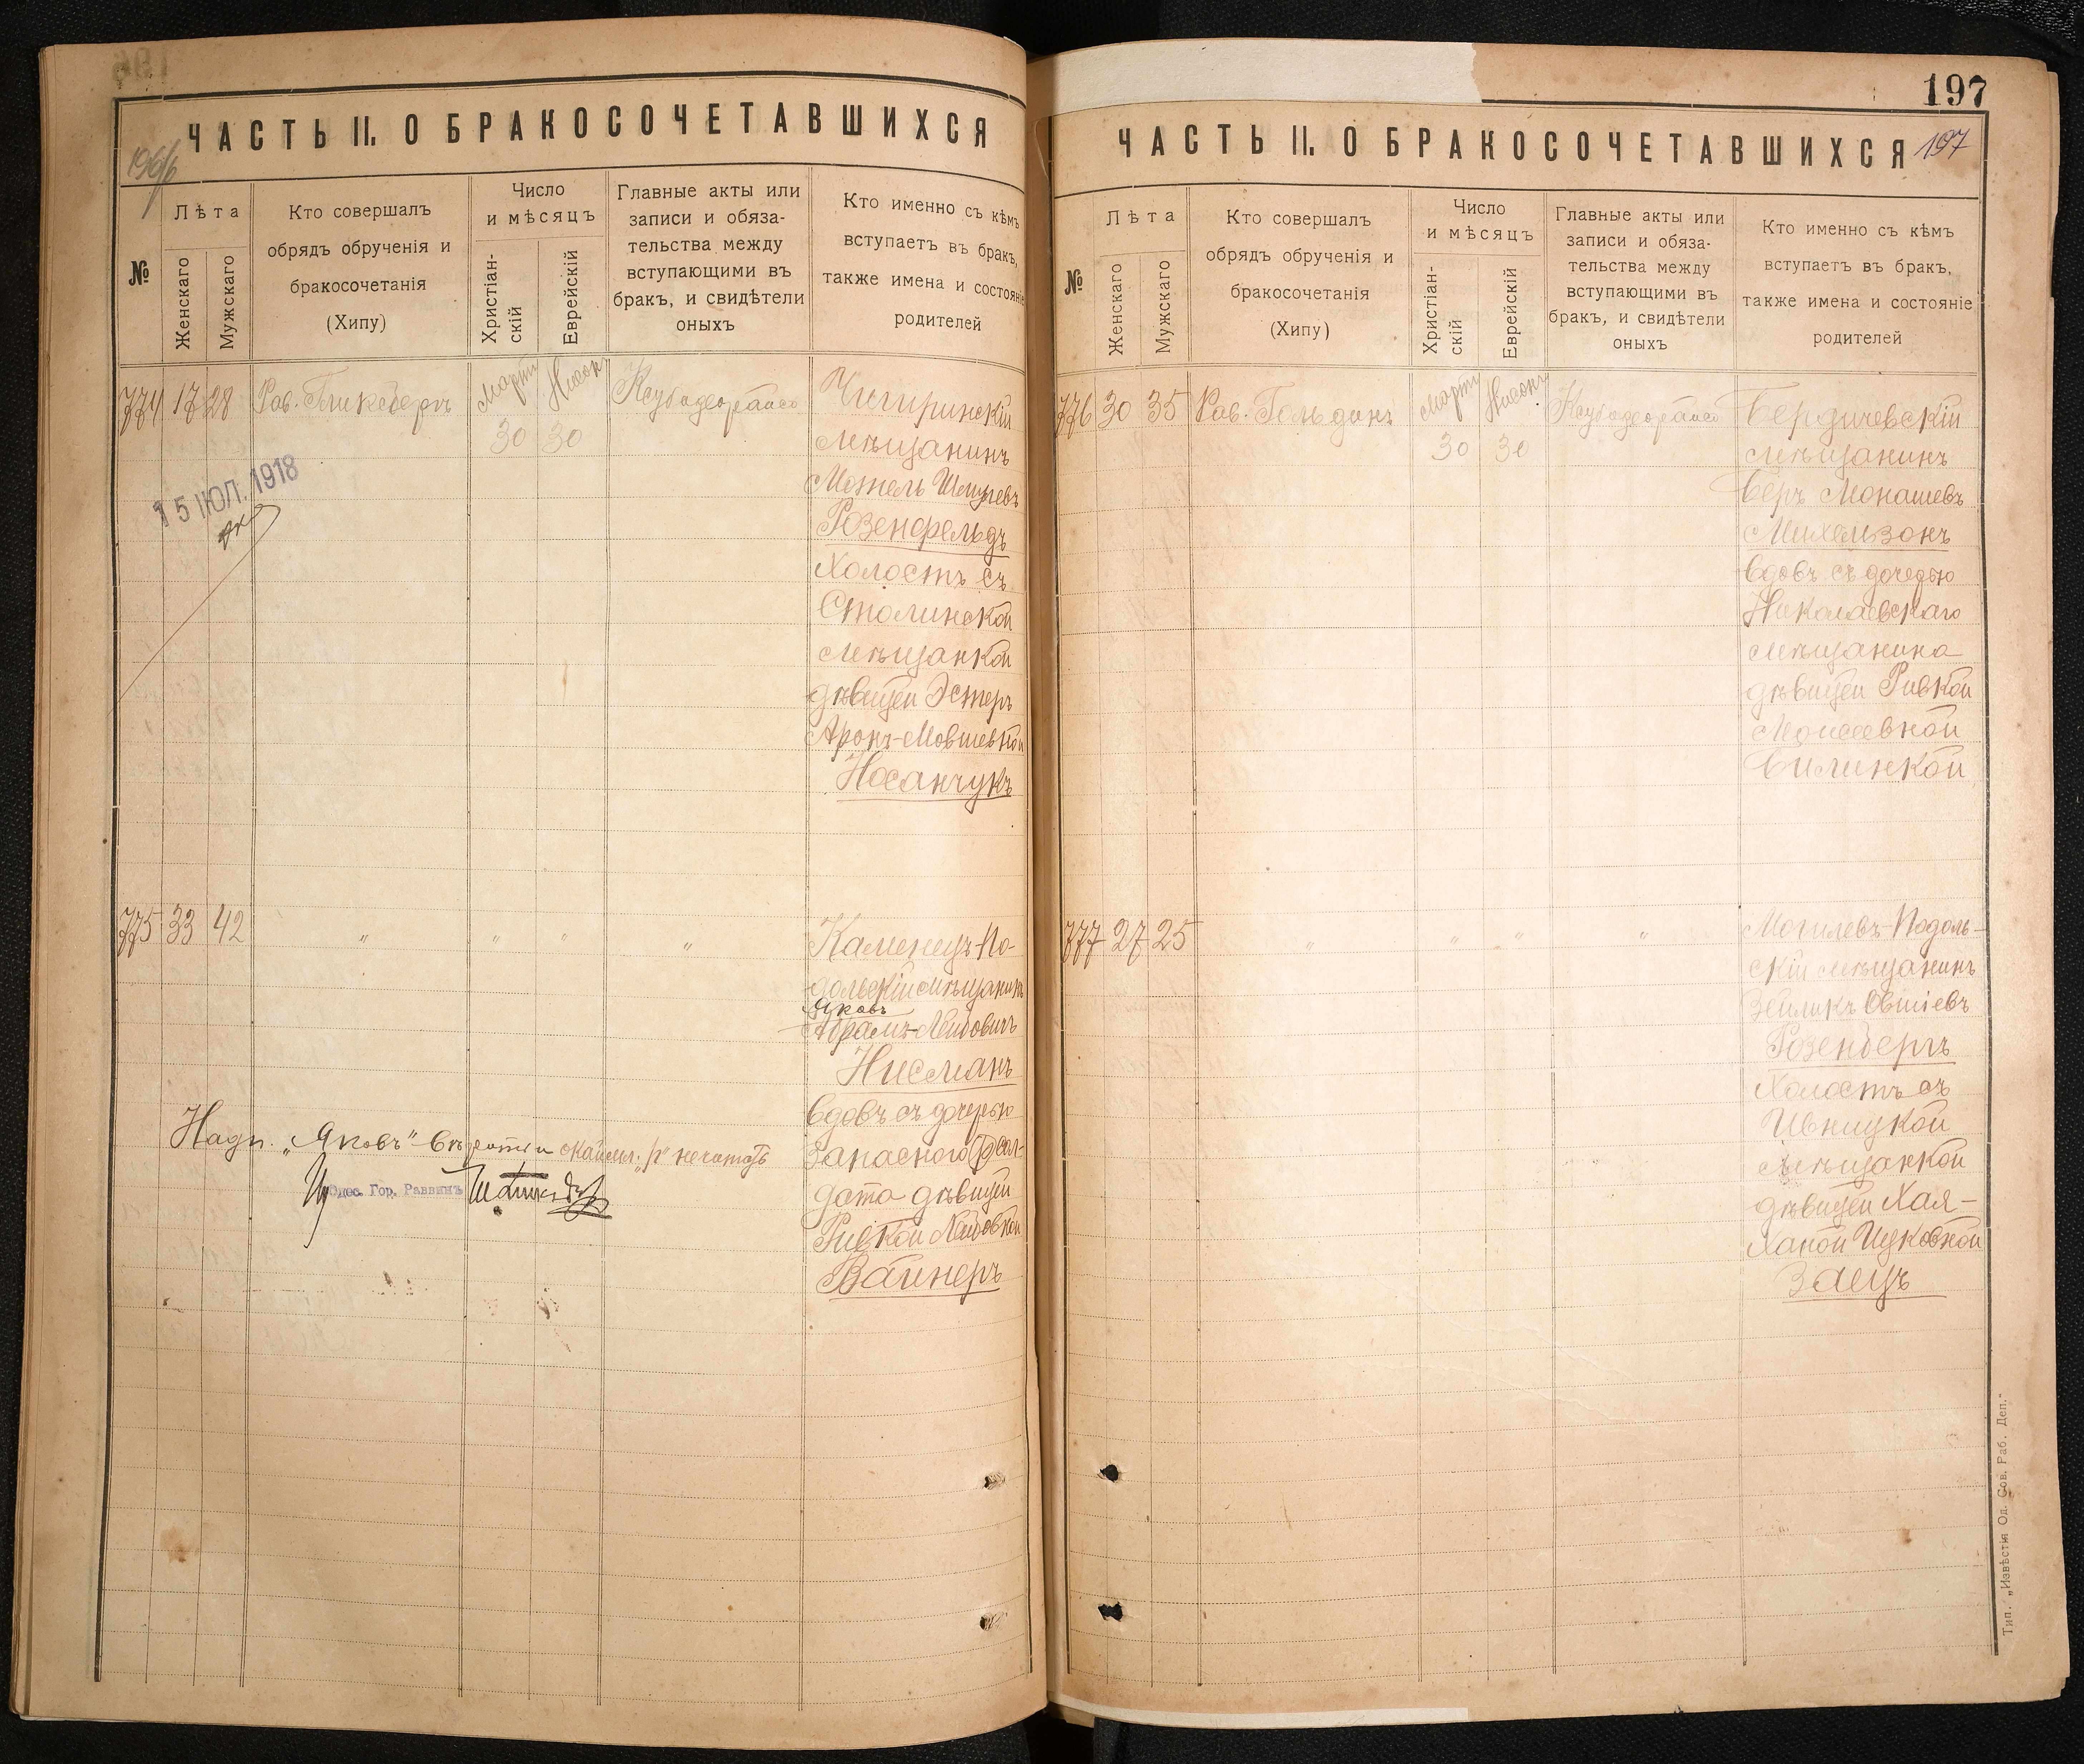 ЧАСТЬ II. О БРАКОСОЧЕТАВШИХСЯ
№
Лѣта
Женскаго
Мужскаго
Кто совершалъ
обрядъ обрученія и
бракосочетанія
(Хипу)
Число
и мѣсяцъ
Христіан-
скій
Еврейскій
Главные акты или
записи и обяза-
тельства между
вступающими въ
бракъ, и свидѣтели
оныхъ
Кто именно съ кѣмъ
вступаетъ въ бракъ,
также имена и состояніе
родителей
774 17 28
Мартъ Нисонъ
30 30
Чигиринскій
мѣщанинъ
Мотель
Розенфельдъ
Холостъ съ
Столинской
мѣщанкой
дѣвицей Эстеръ
Аронъ-Мовшевной
Носанчукъ
15 ІЮЛ. 1918
775 33 42 " " " "
Каменецъ-По-
дольскій мѣщанинъ
Яковъ
Абрамъ-Лейбовичъ
Нисманъ
вдовъ съ дочерью
Запасного сол-
дата дѣвицей
Ривкой
Вайнеръ
Надп. „Яковъ"
Одес. Гор. Раввинъ
197
ЧАСТЬ II. О БРАКОСОЧЕТАВШИХСЯ 197
№
Лѣта
Женскаго
Мужскаго
Кто совершалъ
обрядъ обрученія и
бракосочетанія
(Хипу)
Число
и мѣсяцъ
Христіан-
скій
Еврейскій
Главные акты или
записи и обяза-
тельства между
вступающими въ
бракъ, и свидѣтели
оныхъ
Кто именно съ кѣмъ
вступаетъ въ бракъ,
также имена и состояніе
родителей
776 30 35 Рав. Гольдинъ
Мартъ Нисонъ
30 30
Бердичевскій
мѣщанинъ
Беръ Монашевъ
Михельзонъ
вдовъ съ дочерью
Николаевскаго
мѣщанина
дѣвицей Ривкой
Моисеевной
Билинкой
777 27 25 " " " "
Могилевъ-Подоль-
скій мѣщанинъ
Зейликъ Овшіевъ
Розенбергъ
Холостъ съ
Ивницкой
мѣщанкой
дѣвицей Хая-
Ханой Ицковной
Заецъ
Тип. „Извѣстія Од. Сов. Раб. Деп."